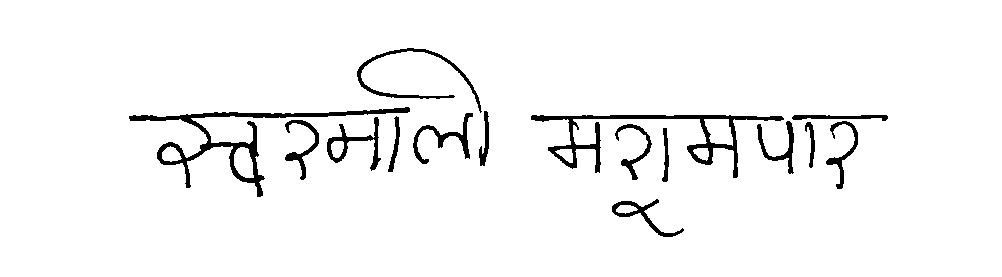 स्वरमाली मशूमपार